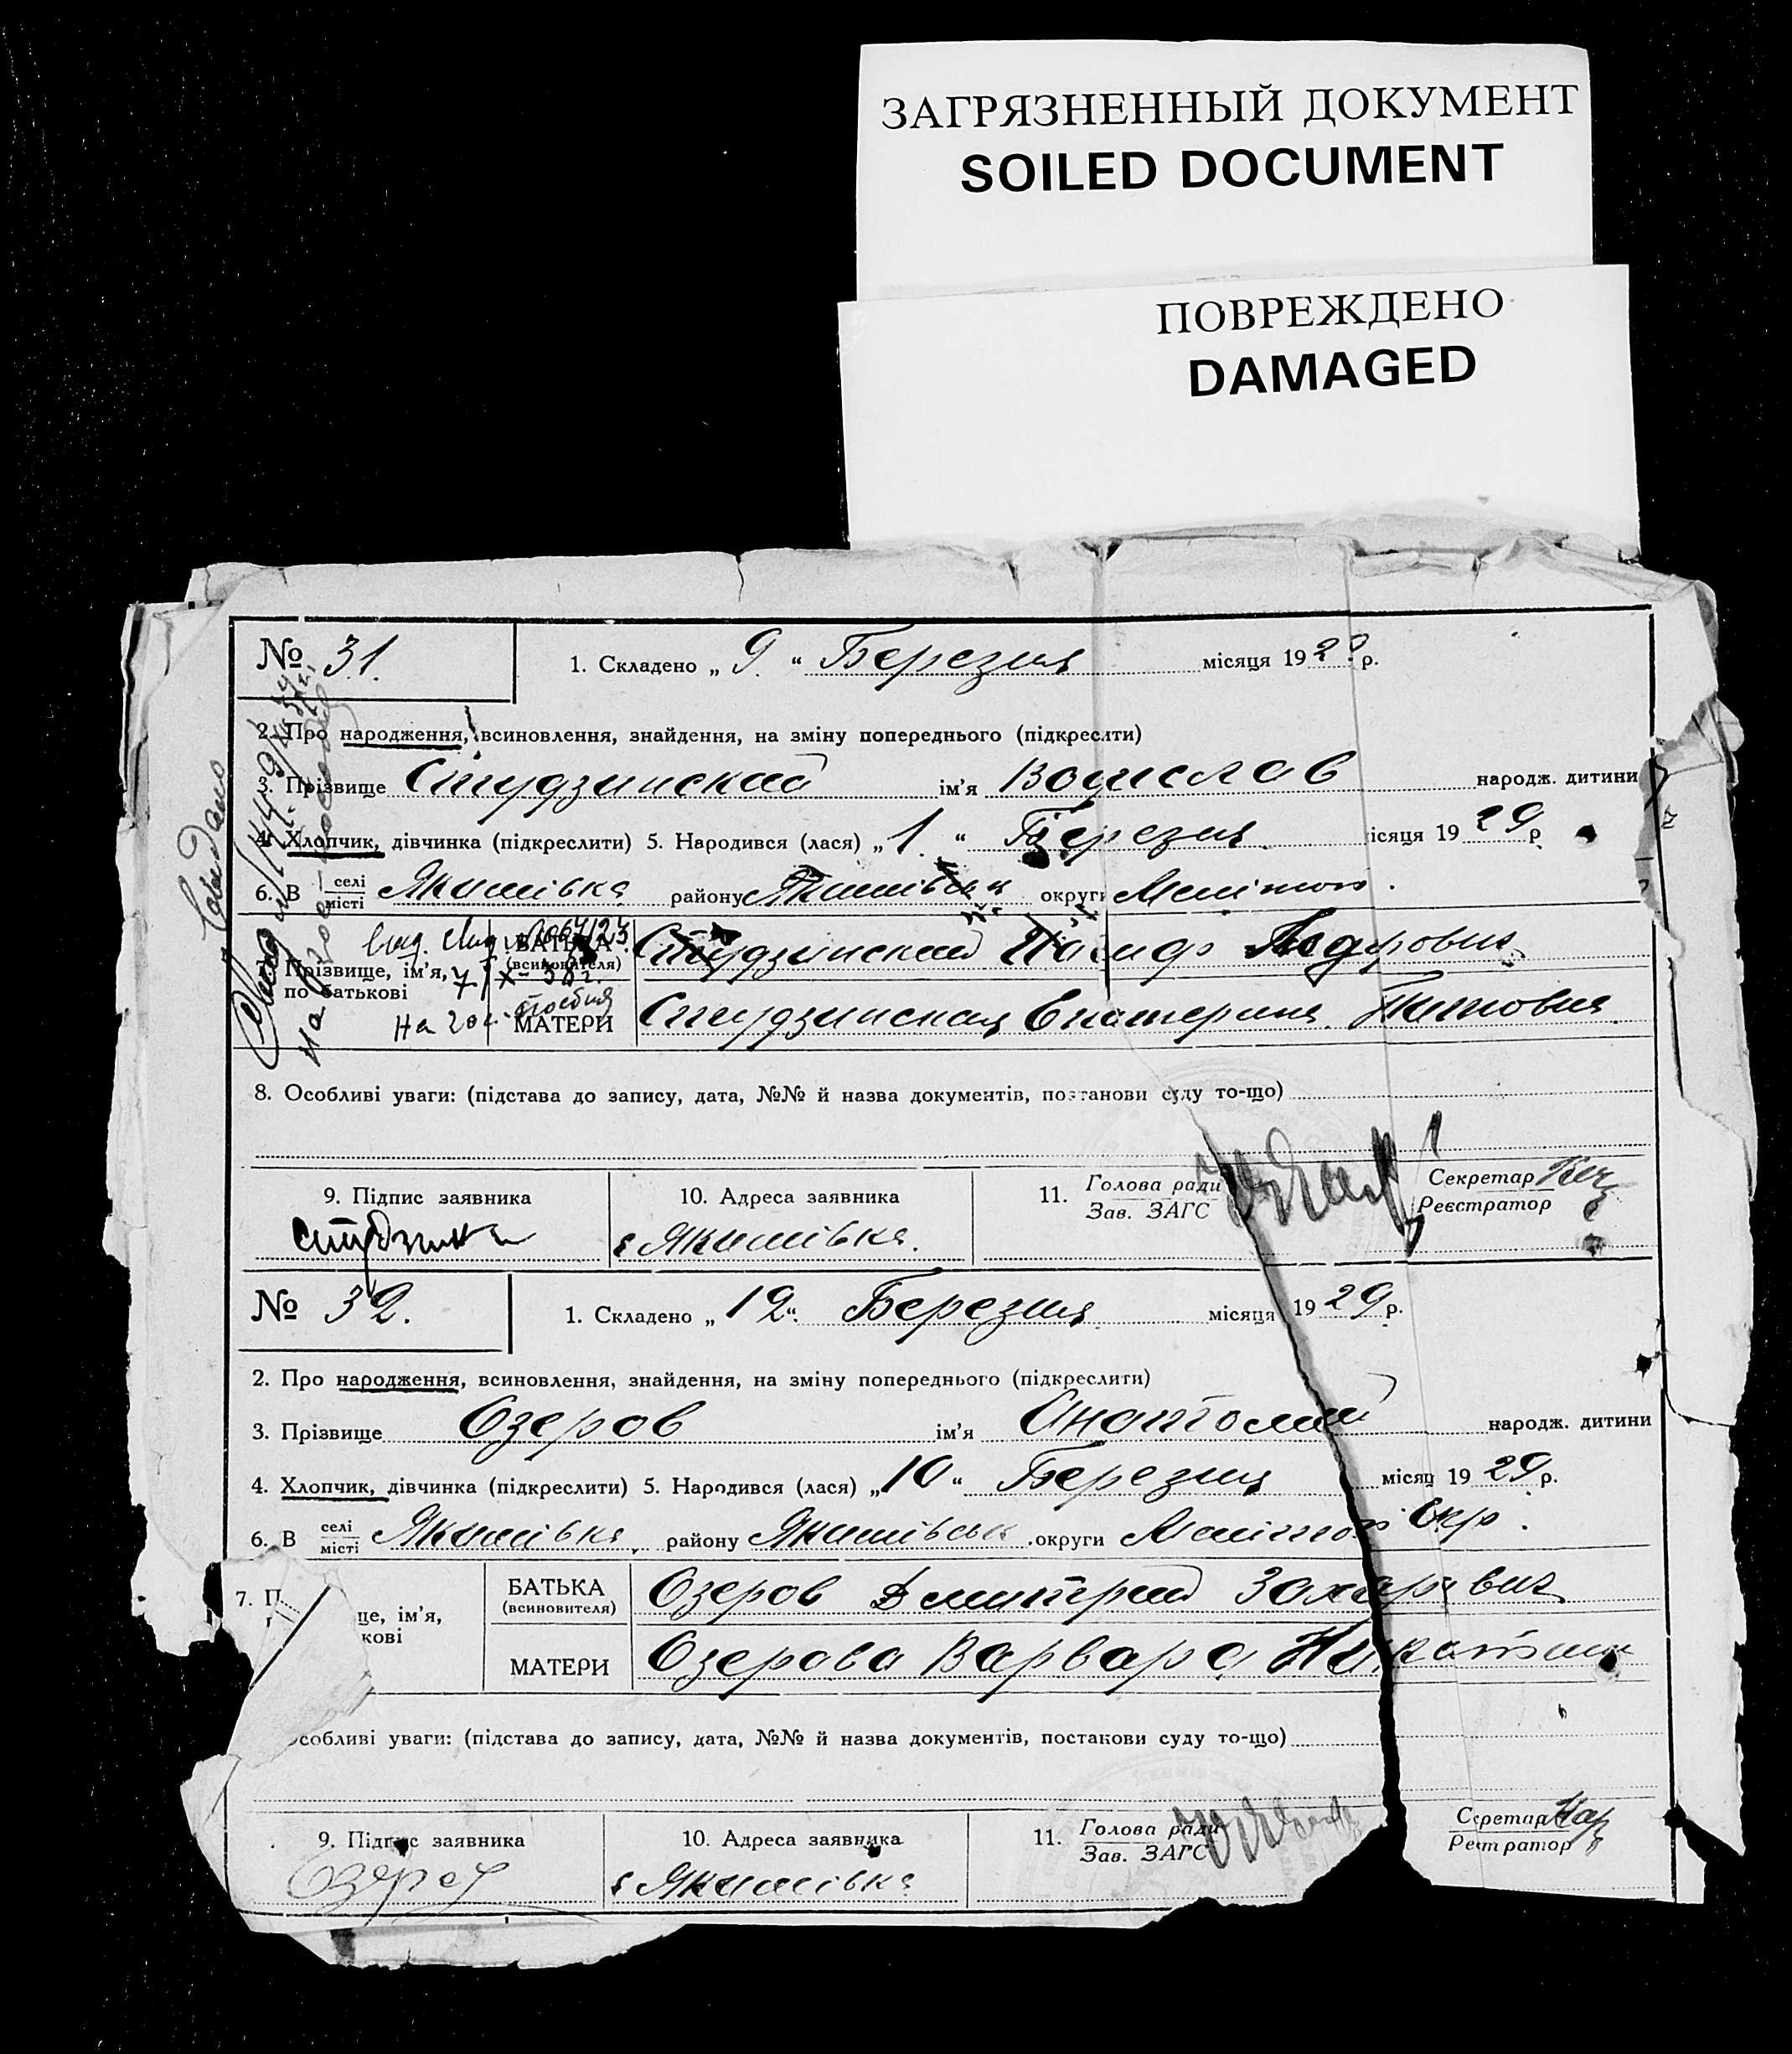 ЗАГРЯЗНЕННЫЙ ДОКУМЕНТ
SOILED DOCUMENT
ПОВРЕЖДЕНО
DAMAGED
№ 31. 1. Складено „ 9 “ Березня місяця 1929 р.
2. Про народження, всиновлення, знайдення, на зміну попереднього (підкреслити)
3. Прізвище Студзинский ім'я народж. дитини
4. Хлопчик, дівчинка (підкреслити) 5. Народився (лася) „ 1 “ Березня місяця 1929 р
6. В селі місті Якимівка району Якимівськ округи Мелітоп.
7. Прізвище, ім'я, по батькові
БАТЬКА (всиновителя) Студзинский
МАТЕРИ Студзинская Екатерина Титовна
8. Особливі уваги: (підстава до запису, дата, №№ й назва документів, постанови суду то-що)
9. Підпис заявника 10. Адреса заявника 11. Голова ради Зав. ЗАГС Секретар Реєстратор
с Якимівка.
№ 32. 1. Складено „ 12 “ Березня місяця 1929 р.
2. Про народження, всиновлення, знайдення, на зміну попереднього (підкреслити)
3. Прізвище Озеров ім'я Анатолий народж. дитини
4. Хлопчик, дівчинка (підкреслити) 5. Народився (лася) „ 10 “ Березня місяц 1929 р.
6. В селі місті Якимівка району Якимівськ округи Мелітоп окр.
7. П це, ім'я, кові
БАТЬКА (всиновителя) Озеров Дмитрий Захарович
МАТЕРИ Озерова Варвара
собливі уваги: (підстава до запису, дата, №№ й назва документів, постанови суду то-що)
9. Підпис заявника 10. Адреса заявника 11. Голова ради Зав. ЗАГС Секретар Реєстратор
с Якимівка